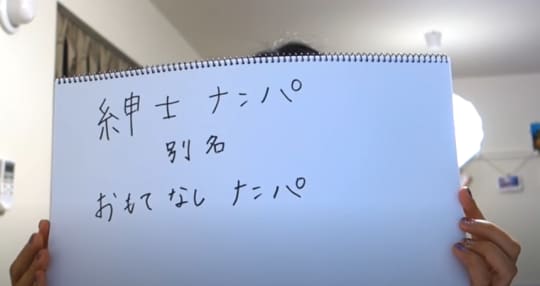 紳士 ナンパ
別名
おもてなし ナンパ